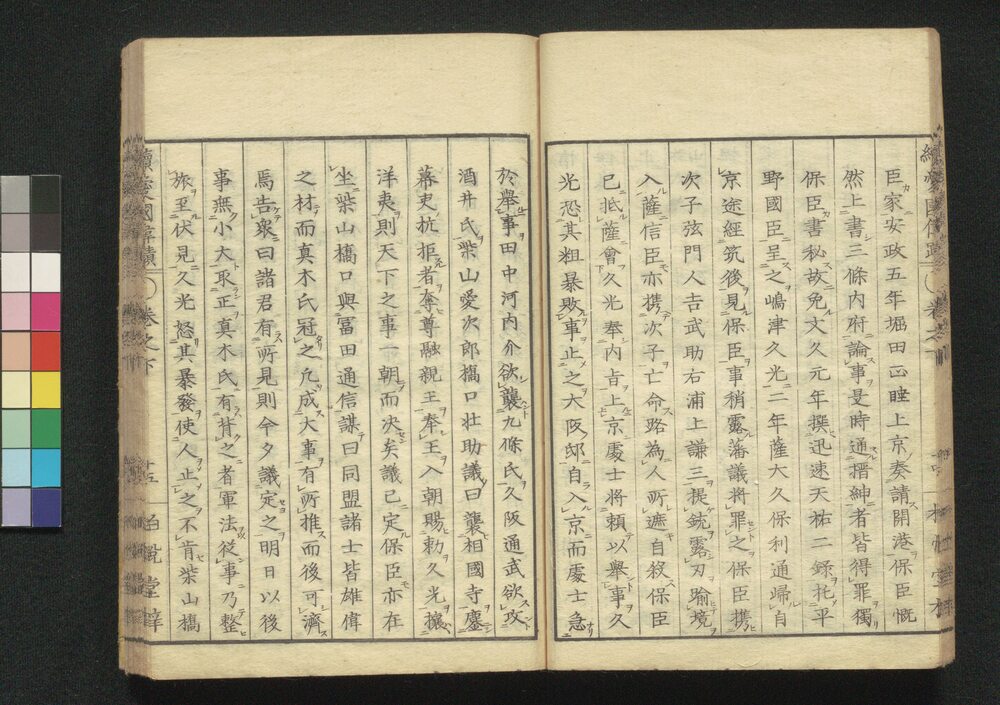 臣家安政五年堀田正睦上京奏請開港保臣慨
然上書三條內府論事是時通搢紳者皆得罪獨
保臣書秘故免文久元年撰迅速天祐二錄托平
野國臣呈之嶋津久光二年薩大久保利通歸自
京途經筑後見保臣事稍露藩議將罪之保臣携
次子弦門人吉武助右浦上謙三提銃露刃踰境
入薩信臣亦携次子亡命路為人所遮自殺保臣
已抵薩會久光奉內旨上京處士將賴以舉事久
光恐其粗暴敗事止之大阪邸自入京而處士急
於舉事田中河內介欲襲九條氏久阪通武欲攻
酒井氏柴山愛次郎橋口壯助議曰襲相國寺鏖
幕吏抗拒者奉尊融親王奉王入朝賜勅久光攘
洋夷則天下之事一朝而決矣議已定保臣亦在
坐柴山橋口與富田通信謀曰同盟諸士皆雄偉
之材而真木氏冠之凡成大事有所推而後可濟
焉告衆曰諸君有所見則令夕議定之明日以後
事無小大取正真木氏有背之者軍法從事乃整
旅至伏見久光怒其暴發使人止之不肯柴山橋
續愛國偉蹟
卷之下